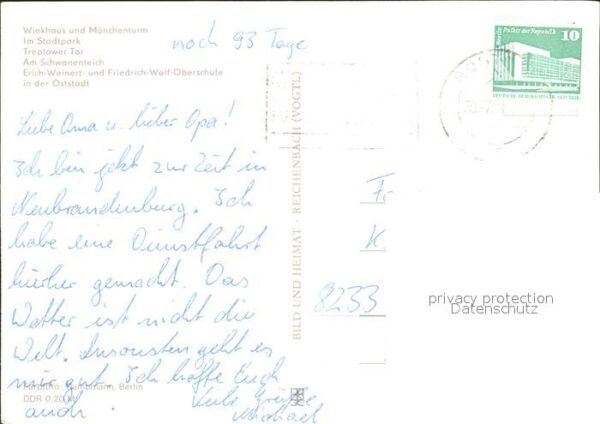 Wiekhaus und Mönchenturm
Im Stadtpark
Treptower Tor
Am Schwanenteich
Erich-Weinert- und Friedrich-Wolf-Oberschule
in der Oststadt
noch 93 Tage
Liebe Oma u. lieber Opa!
Ich bin jetzt zur Zeit in
Neubrandenburg. Ich
habe eine Dienstfahrt
hierher gemacht. Das
Wetter ist nicht die
Welt. Ansonsten geht es
mir gut. Ich hoffe Euch
auch. Viele Grüße
Michael
Berlin
DDR 0,20 M
BILD UND HEIMAT · REICHENBACH (VOGTL)
Berlin, Palast der Republik
10
DEUTSCHE DEMOKRATISCHE REPUBLIK
Fr
K
8233
privacy protection
Datenschutz